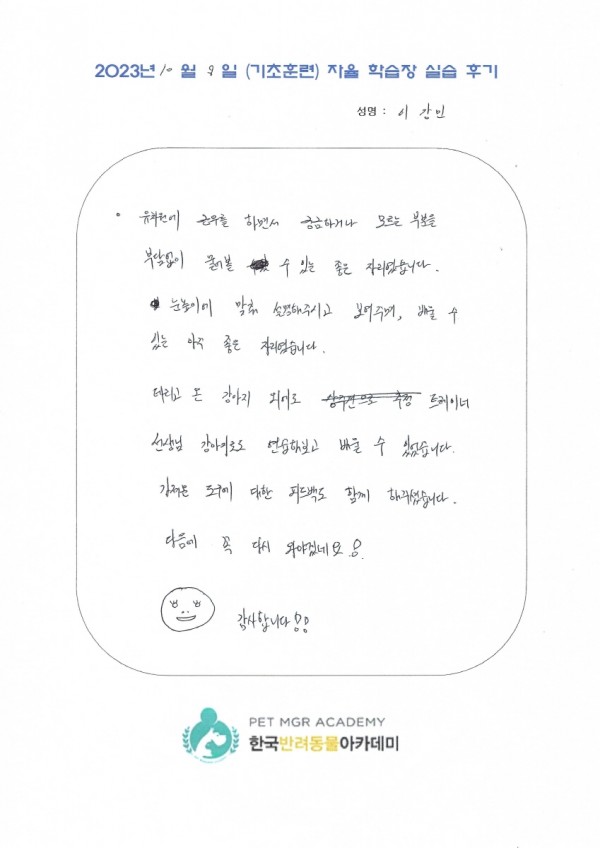 2023년 10 월 9 일 (기초훈련) 자율 학습장 실습 후기
성명 : 이강민
• 유치원에 근무를 하면서 궁금하거나 모르는 부분을
부담없이 물어볼 수 있는 좋은 자리였습니다.
눈높이에 맞춰 설명해주시고 보여주며, 배울 수
있는 아주 좋은 자리였습니다.
데리고 온 강아지 외에도 트레이너
선생님 강아지로도 연습해보고 배울 수 있었습니다.
가져온 도구에 대한 피드백도 함께 해주셨습니다.
다음에 꼭 다시 와야겠네요!
감사합니다!!
PET MGR ACADEMY
한국반려동물아카데미